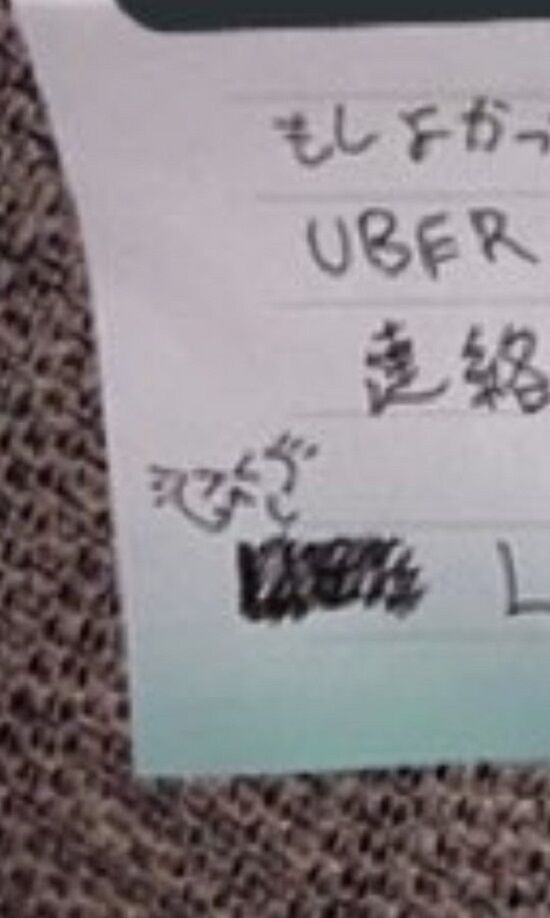 もしよかっ
UBER
連絡
L